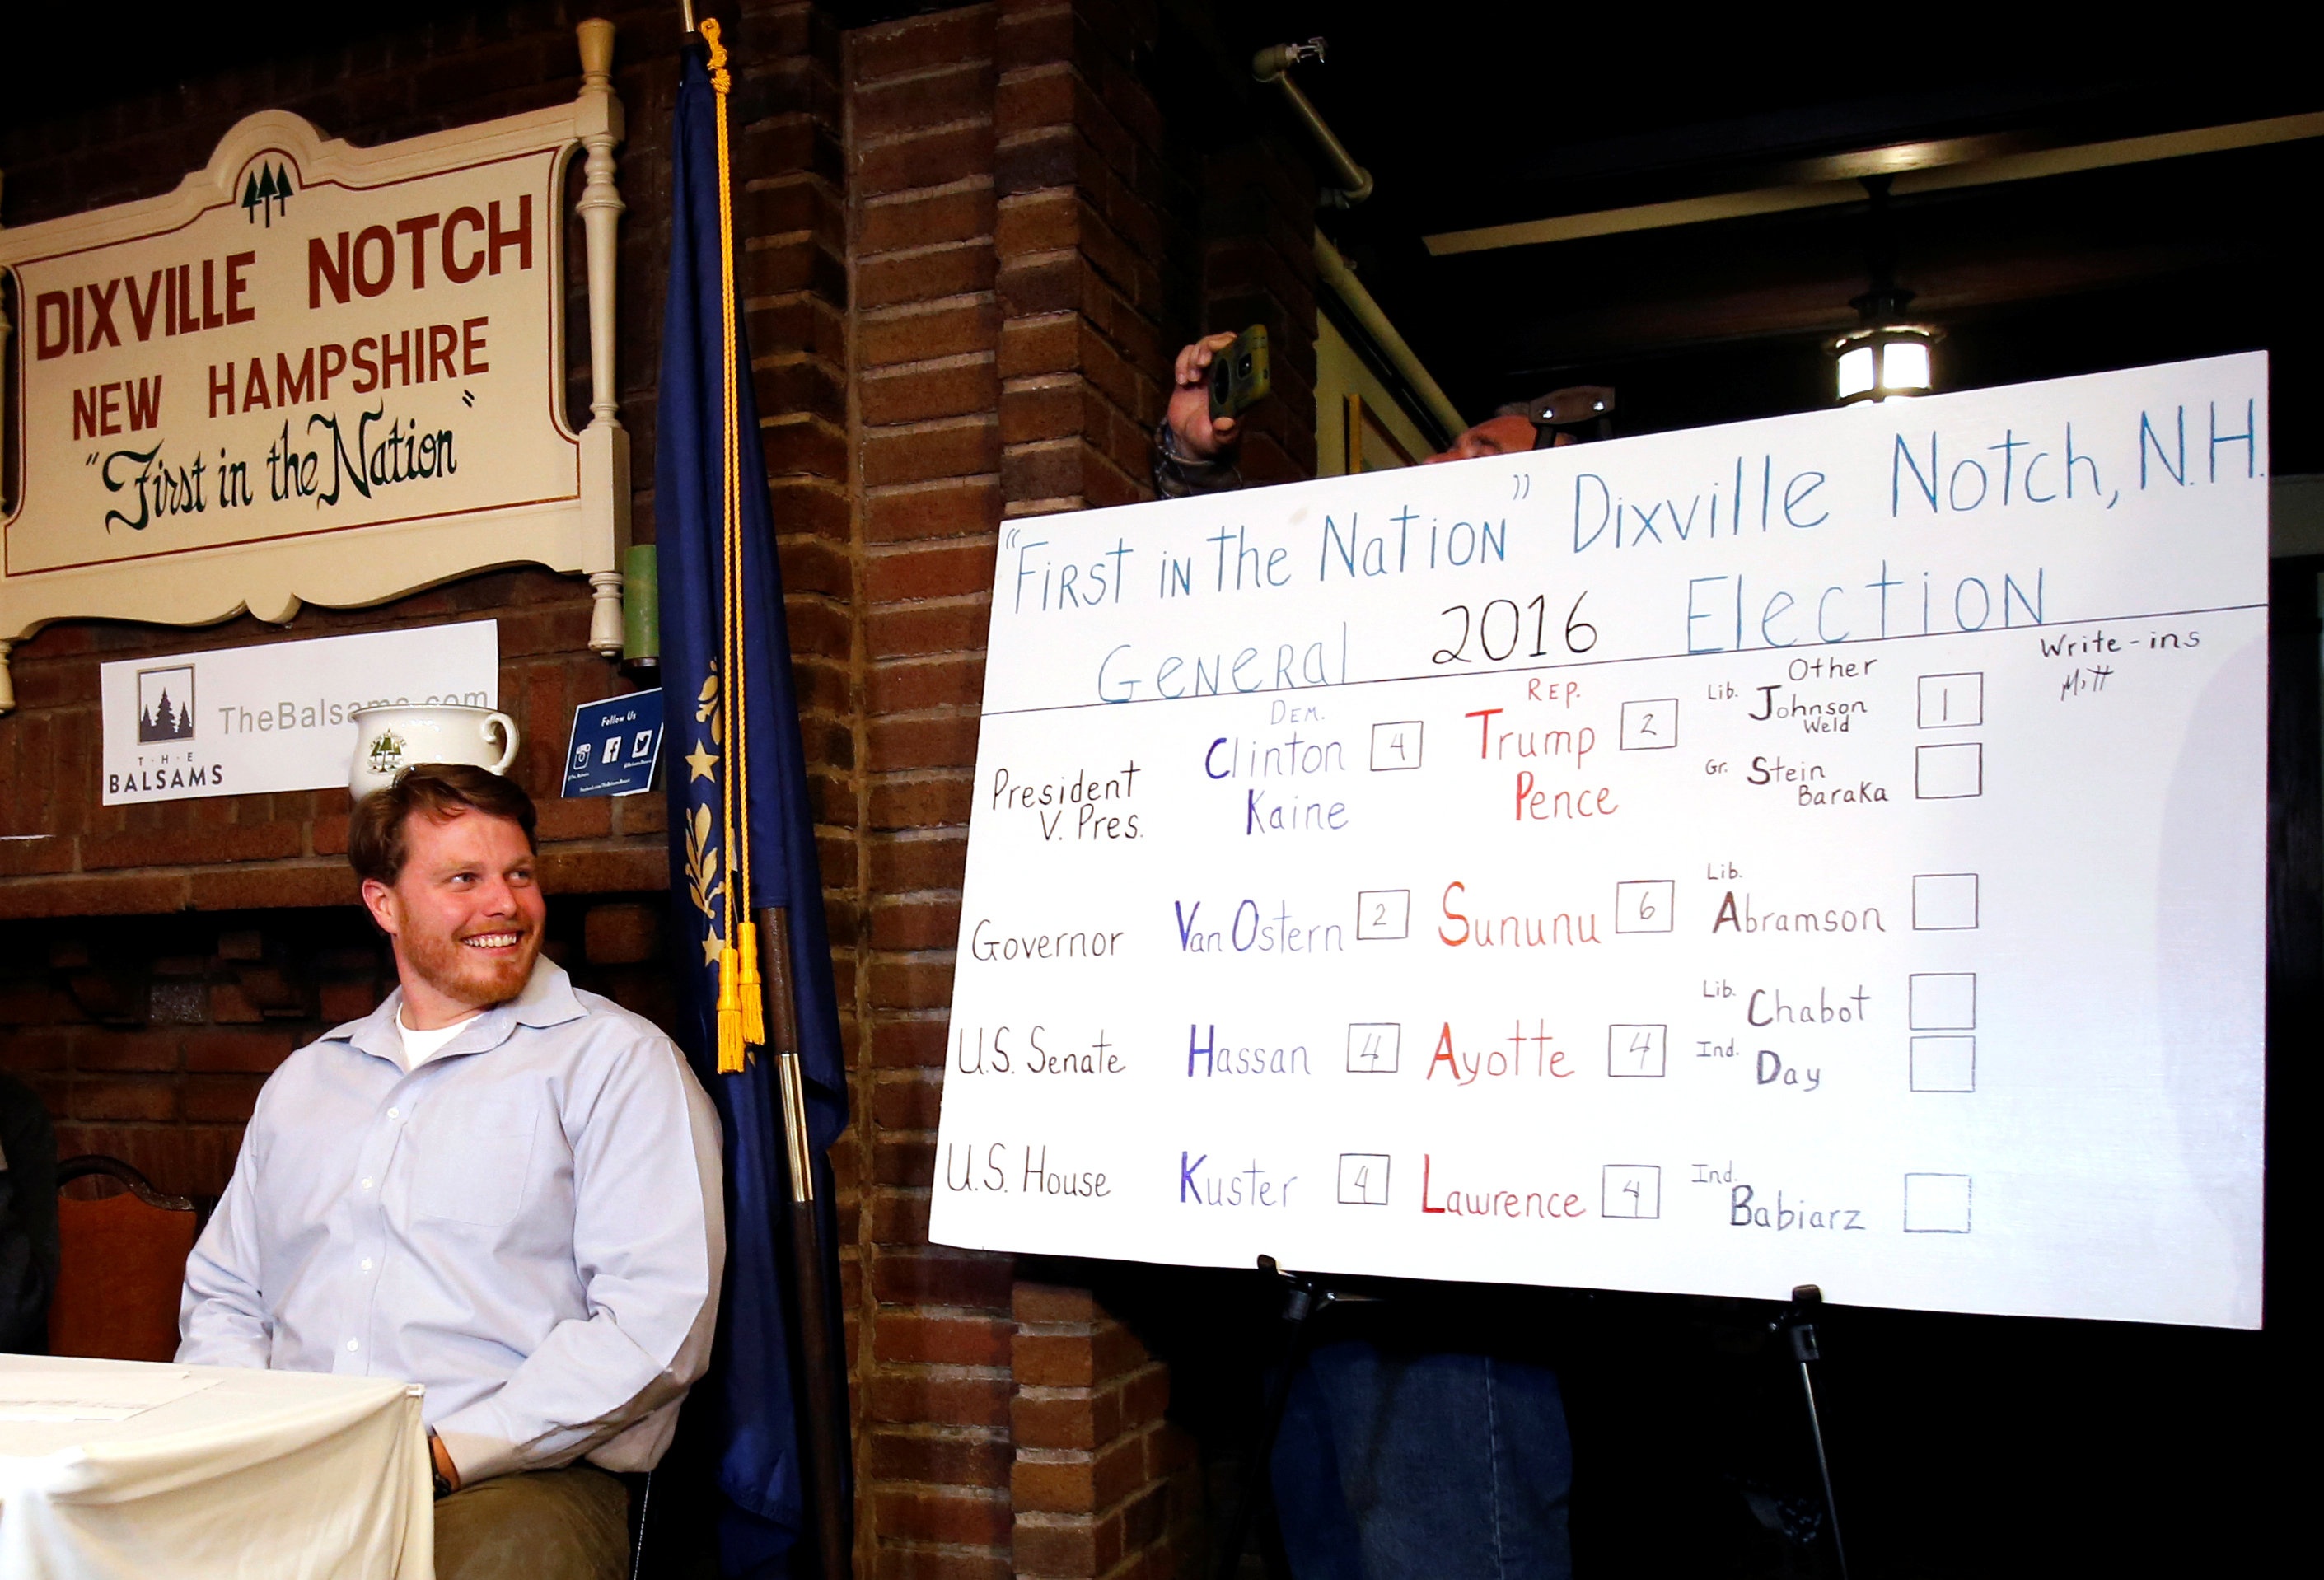 DIXVILLE NOTCH
NEW HAMPSHIRE
"First in the Nation"
TheBalsams.com
THE
BALSAMS
Follow Us
"First in the Nation" Dixville Notch, N.H.
General 2016 Election
Write-ins
Mitt
Dem.
Rep.
Other
President
V. Pres.
Clinton 4
Kaine
Trump 2
Pence
Lib. Johnson 1
Weld
Gr. Stein
Baraka
Governor Van Ostern 2 Sununu 6 Lib. Abramson
U.S. Senate Hassan 4 Ayotte 4 Lib. Chabot
Ind. Day
U.S. House Kuster 4 Lawrence 4 Ind. Babiarz